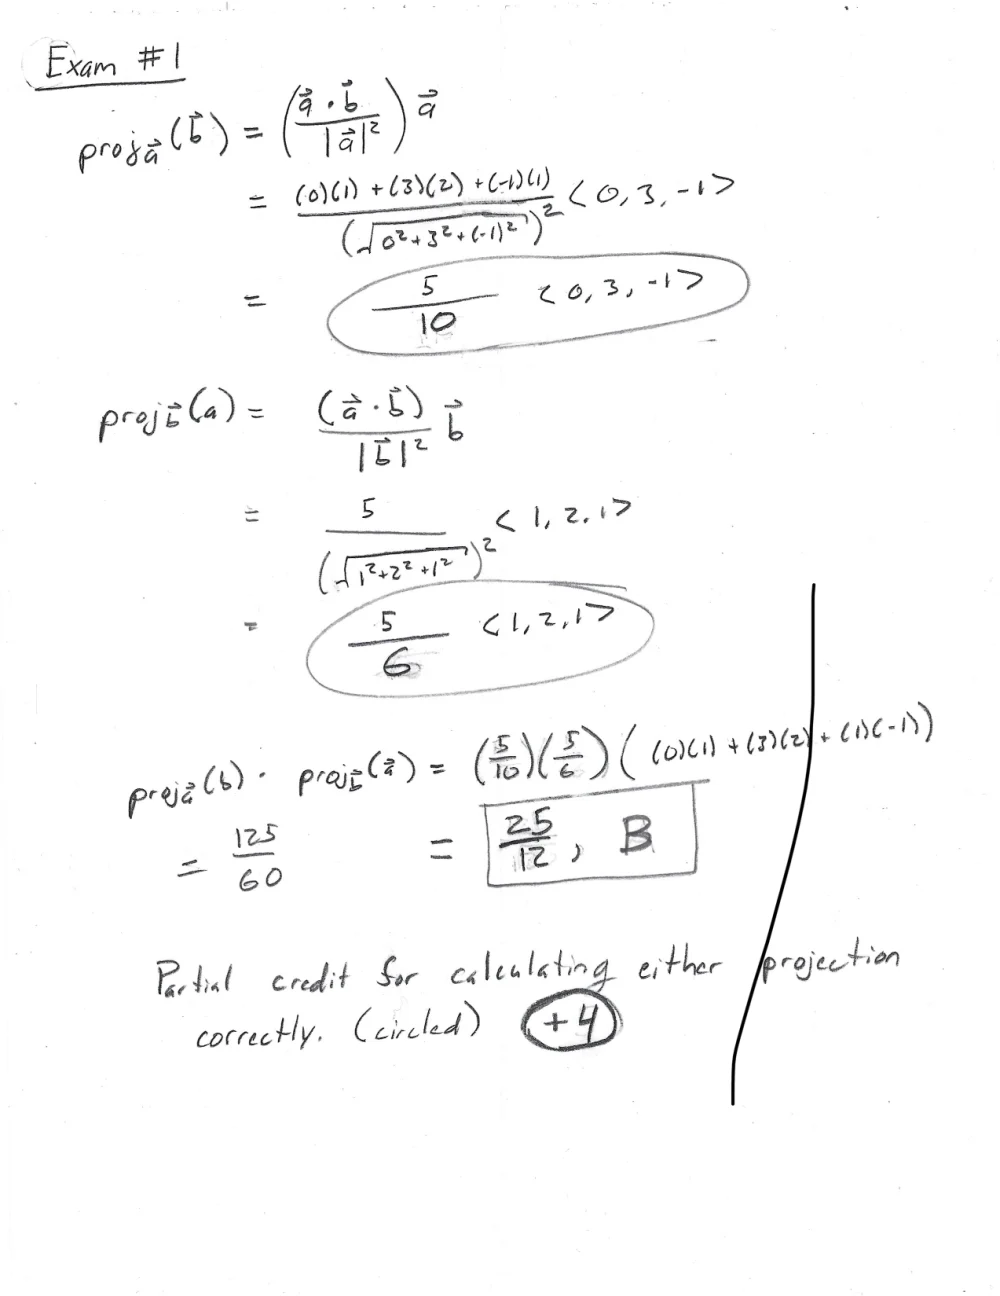 Exam #1
proj_a⃗ (b⃗) = (a⃗ · b⃗ / |a⃗|²) a⃗
= (0)(1) + (3)(2) + (-1)(1) / (√(0²+3²+(-1)²))² <0, 3, -1>
= 5/10 <0, 3, -1>
proj_b⃗ (a) = (a⃗ · b⃗) / |b⃗|² b⃗
= 5 / (√(1²+2²+1²))² <1, 2, 1>
= 5/6 <1, 2, 1>
proj_a⃗ (b) · proj_b⃗ (a⃗) = (5/10)(5/6) ( (0)(1) + (3)(2) + (1)(-1) )
= 125/60 = 25/12, B
Partial credit for calculating either projection
correctly. (circled) +4